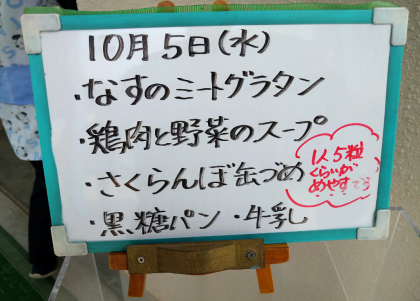 10月5日(水)
・なすのミートグラタン
・鶏肉と野菜のスープ
・さくらんぼ缶づめ
1人5粒
くらいが
めやすです
・黒糖パン ・牛乳